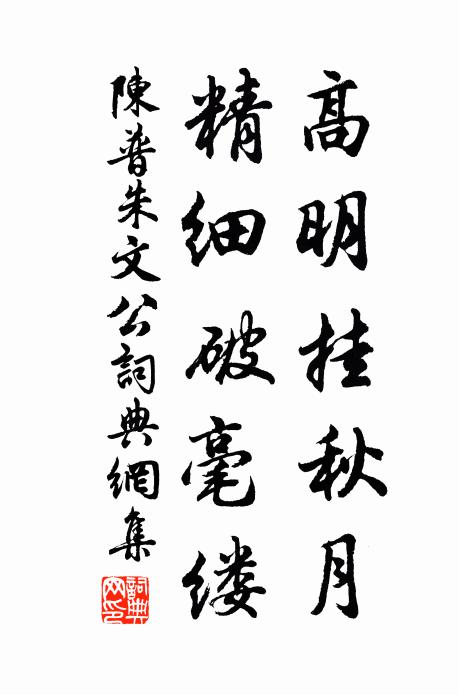 高明挂秋月
精细破毫缕
陳普朱文公詞典網集
詞典网印